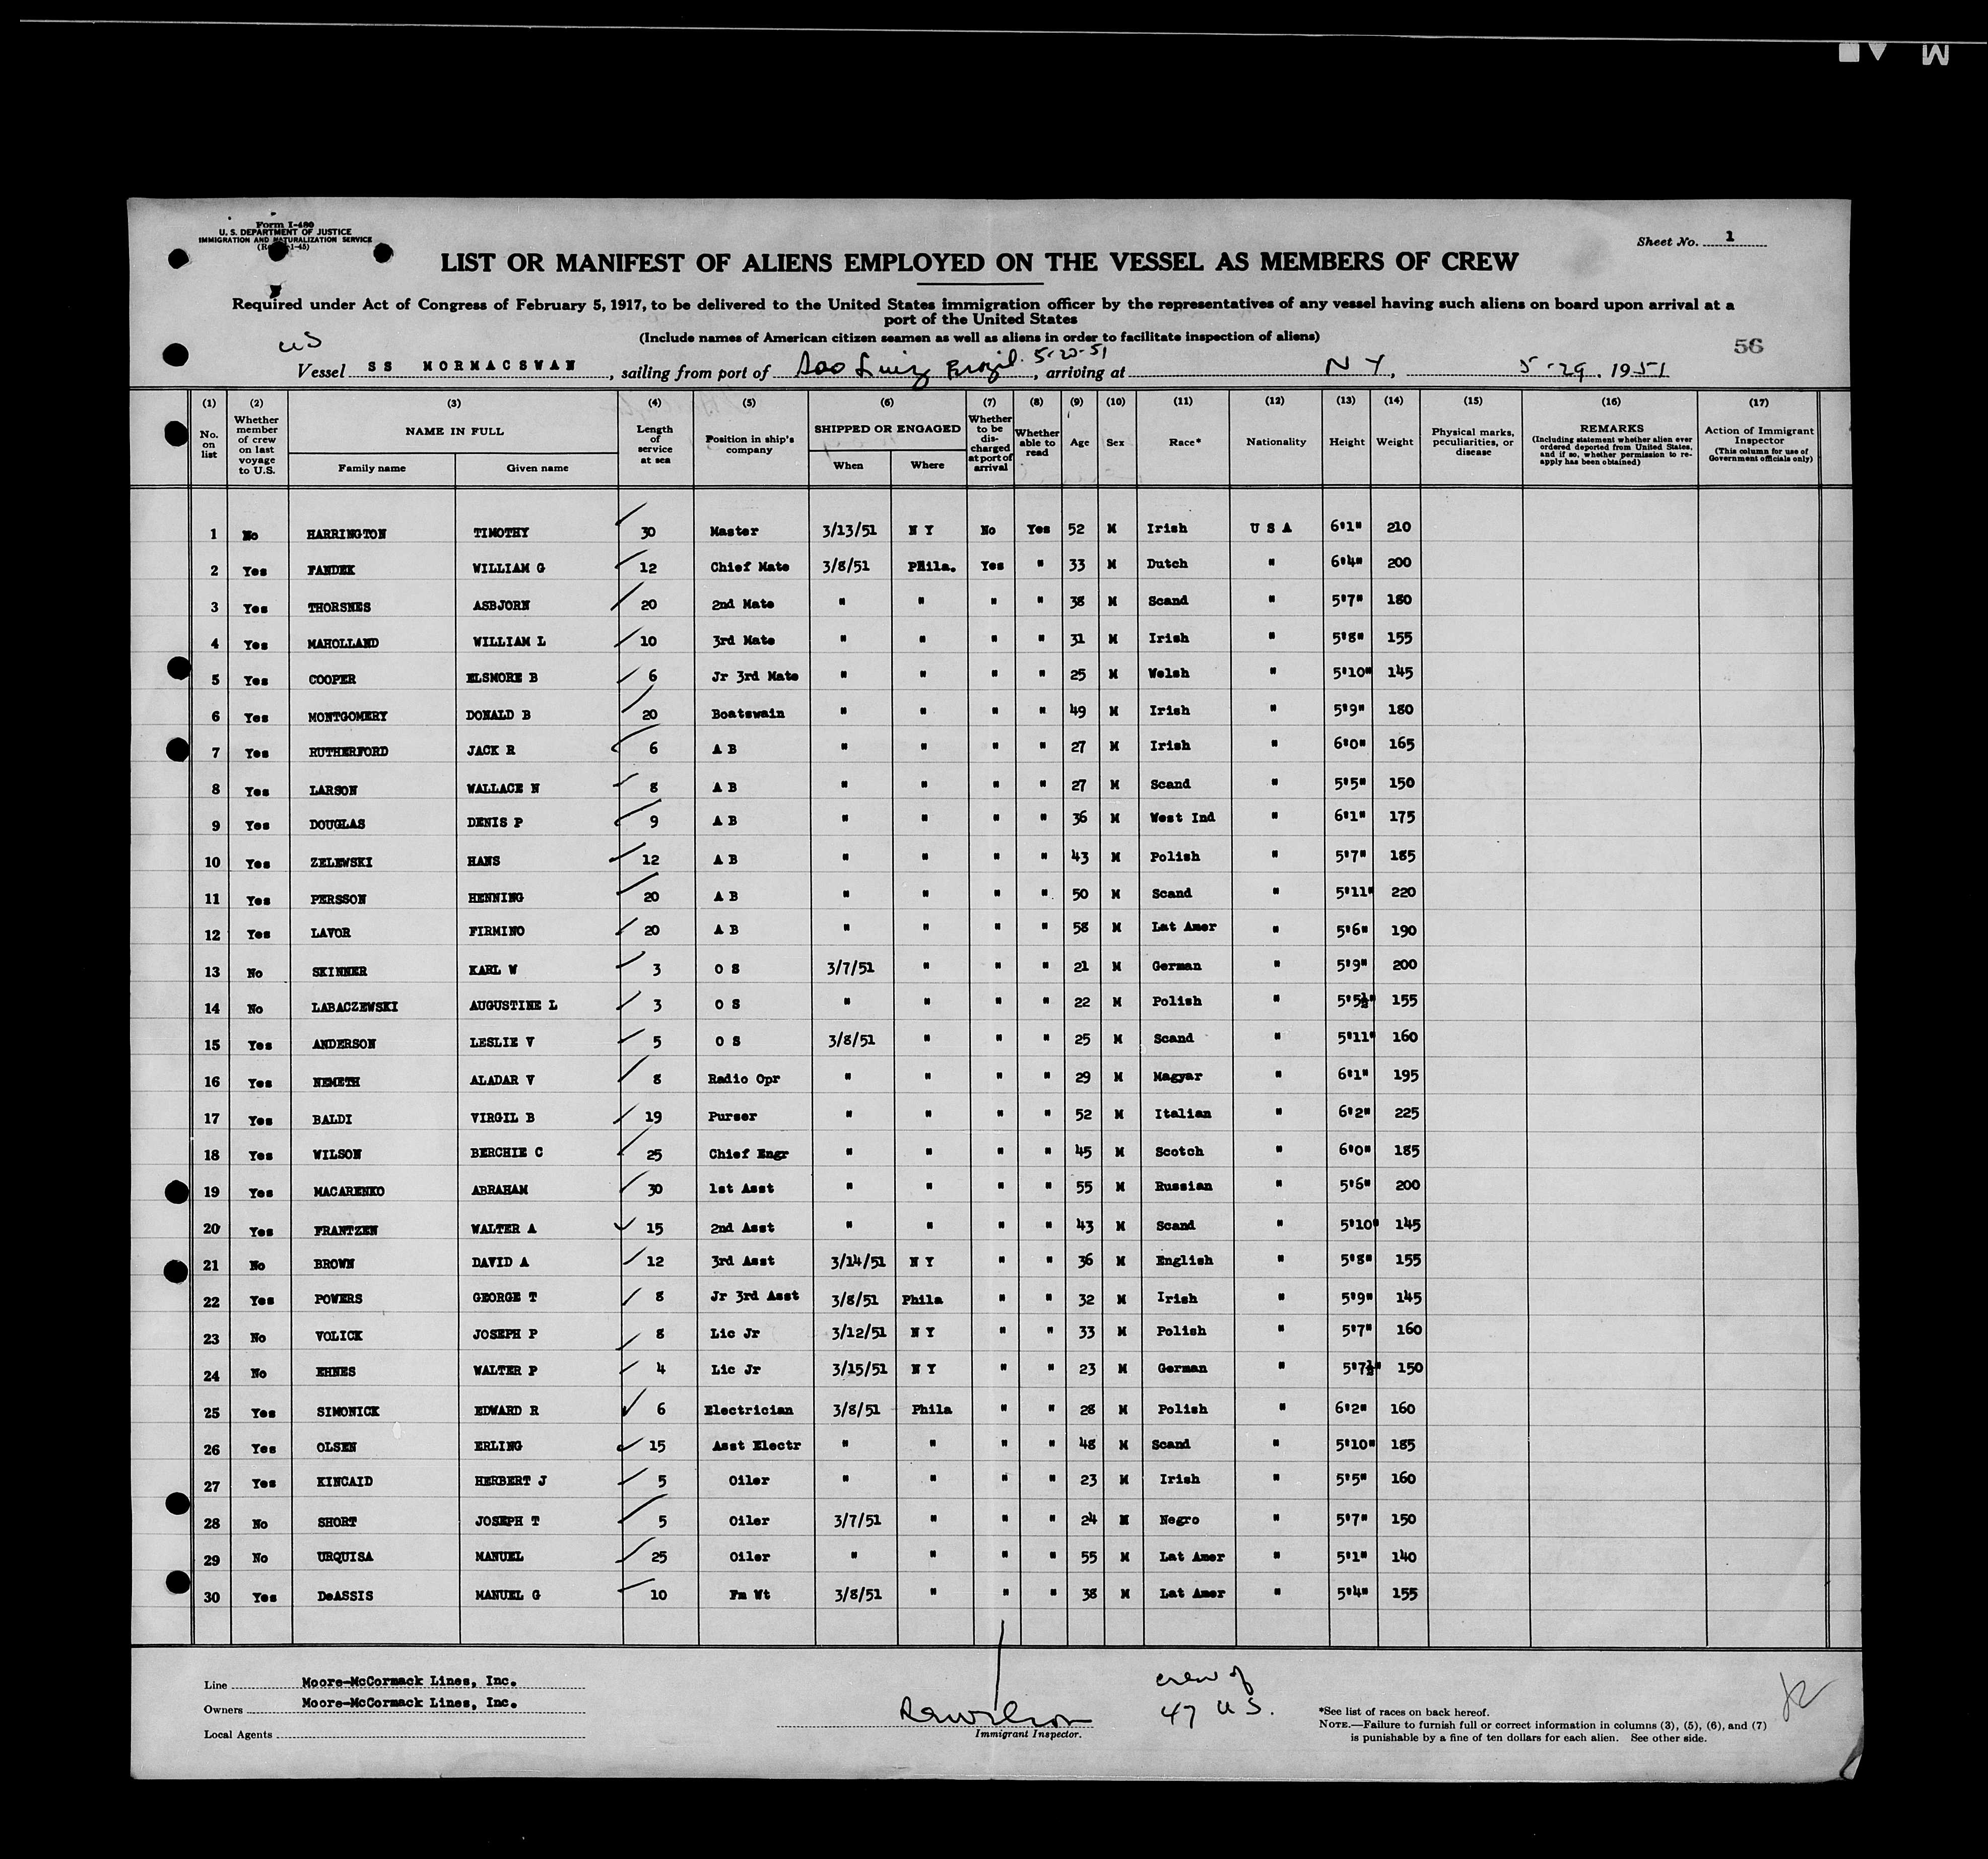 M
Form I-480
U. S. DEPARTMENT OF JUSTICE
IMMIGRATION AND NATURALIZATION SERVICE
Sheet No. 1
LIST OR MANIFEST OF ALIENS EMPLOYED ON THE VESSEL AS MEMBERS OF CREW
Required under Act of Congress of February 5, 1917, to be delivered to the United States immigration officer by the representatives of any vessel having such aliens on board upon arrival at a
port of the United States
(Include names of American citizen seamen as well as aliens in order to facilitate inspection of aliens)
56
US
Vessel SS MORMACSWAN, sailing from port of Sao Luiz Brazil. 5-20-51, arriving at N Y, 5-29, 1951
(1) (2) (3) (4) (5) (6) (7) (8) (9) (10) (11) (12) (13) (14) (15) (16) (17)
No. on list
Whether member of crew on last voyage to U.S.
NAME IN FULL
Family name Given name
Length of service at sea
Position in ship's company
SHIPPED OR ENGAGED
When Where
Whether to be discharged at port of arrival
Whether able to read
Age Sex Race* Nationality Height Weight
Physical marks, peculiarities, or disease
REMARKS
(Including statement whether alien ever ordered deported from United States, and if so, whether permission to re-apply has been obtained)
Action of Immigrant Inspector
(This column for use of Government officials only)
1 No HARRINGTON TIMOTHY 30 Master 3/13/51 N Y No Yes 52 M Irish U S A 6'1" 210
2 Yes FANDEK WILLIAM G 12 Chief Mate 3/8/51 Phila. Yes " 33 M Dutch " 6'4" 200
3 Yes THORSNES ASBJORN 20 2nd Mate " " " " 38 M Scand " 5'7" 180
4 Yes MAHOLLAND WILLIAM L 10 3rd Mate " " " " 31 M Irish " 5'8" 155
5 Yes COOPER ELSMORE B 6 Jr 3rd Mate " " " " 25 M Welsh " 5'10" 145
6 Yes MONTGOMERY DONALD B 20 Boatswain " " " " 49 M Irish " 5'9" 180
7 Yes RUTHERFORD JACK R 6 A B " " " " 27 M Irish " 6'0" 165
8 Yes LARSON WALLACE N 8 A B " " " " 27 M Scand " 5'5" 150
9 Yes DOUGLAS DENIS P 9 A B " " " " 36 M West Ind " 6'1" 175
10 Yes ZELEWSKI HANS 12 A B " " " " 43 M Polish " 5'7" 185
11 Yes PERSSON HENNING 20 A B " " " " 50 M Scand " 5'11" 220
12 Yes LAVOR FIRMINO 20 A B " " " " 58 M Lat Amer " 5'6" 190
13 No SKINNER KARL W 3 O S 3/7/51 " " " 21 M German " 5'9" 200
14 No LABACZEWSKI AUGUSTINE L 3 O S " " " " 22 M Polish " 5'5½" 155
15 Yes ANDERSON LESLIE V 5 O S 3/8/51 " " " 25 M Scand " 5'11" 160
16 Yes NEMETH ALADAR V 8 Radio Opr " " " " 29 M Magyar " 6'1" 195
17 Yes BALDI VIRGIL B 19 Purser " " " " 52 M Italian " 6'2" 225
18 Yes WILSON BERCHIE C 25 Chief Engr " " " " 45 M Scotch " 6'0" 185
19 Yes MACARENKO ABRAHAM 30 1st Asst " " " " 55 M Russian " 5'6" 200
20 Yes FRANTZEN WALTER A 15 2nd Asst " " " " 43 M Scand " 5'10" 145
21 No BROWN DAVID A 12 3rd Asst 3/14/51 N Y " " 36 M English " 5'8" 155
22 Yes POWERS GEORGE T 8 Jr 3rd Asst 3/8/51 Phila " " 32 M Irish " 5'9" 145
23 No VOLICK JOSEPH P 8 Lic Jr 3/12/51 N Y " " 33 M Polish " 5'7" 160
24 No EHNES WALTER P 4 Lic Jr 3/15/51 N Y " " 23 M German " 5'7½" 150
25 Yes SIMONICK EDWARD R 6 Electrician 3/8/51 Phila " " 28 M Polish " 6'2" 160
26 Yes OLSEN ERLING 15 Asst Electr " " " " 48 M Scand " 5'10" 185
27 Yes KINCAID HERBERT J 5 Oiler " " " " 23 M Irish " 5'5" 160
28 No SHORT JOSEPH T 5 Oiler 3/7/51 " " " 24 M Negro " 5'7" 150
29 No URQUISA MANUEL 25 Oiler " " " " 55 M Lat Amer " 5'1" 140
30 Yes DeASSIS MANUEL G 10 Fm Wt 3/8/51 " " " 38 M Lat Amer " 5'4" 155
Line Moore-McCormack Lines, Inc.
Owners Moore-McCormack Lines, Inc.
Local Agents
Immigrant Inspector.
crew of
47 US.
*See list of races on back hereof.
NOTE.—Failure to furnish full or correct information in columns (3), (5), (6), and (7)
is punishable by a fine of ten dollars for each alien. See other side.